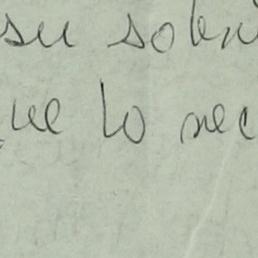 su sobri
que lo nec